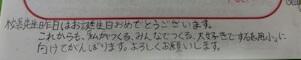 松苔先生昨日はお誕生日おめでとうございます。
これからも、私がつくる、みんなでつくる、大好きです長田小。に
向けてがんばります。よろしくお願いします。